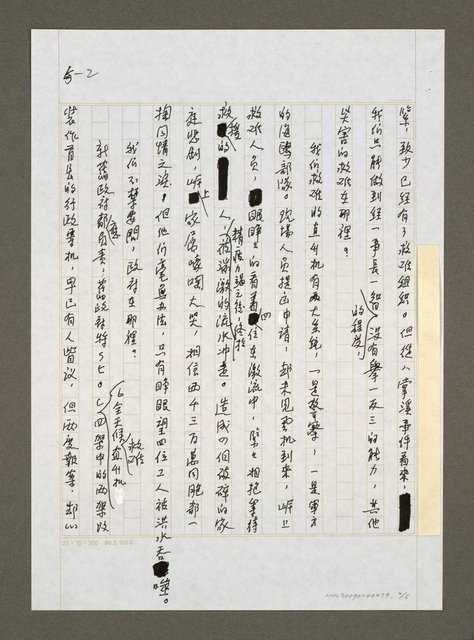 5-2
鑒，致少已經有了救難組織。但從八掌溪事件看來，
我們只能做到經一事長一智的程度，沒有舉一反三的能力，其他
災害的救難在那裡？
我們救難的直升机有兩大系統，一是警察，一是軍方
的海鷗部隊。現場人員提出申請，卻未見飛机到來，岸上
救難人員，眼睜睜的看著四位在激流中，緊緊相抱等待
救援的人，精疲力竭之後終於被湍激的流水沖走。造成四個破碎的家
庭悲劇，岸上家屬嚎啕大哭，相信兩千三百萬同胞都一
掬同情之淚。但他們毫無辦法，只有睜眼望四位工人被洪水吞噬。
我們不禁要問，政府在那裡？
新舊政府都應負責，舊政府將S七○C六全天候救難直升机四架中的兩架改
裝作首長的行政專机，早已有人詬議，但兩度報章，卻以
25×12=300 86.5.100本